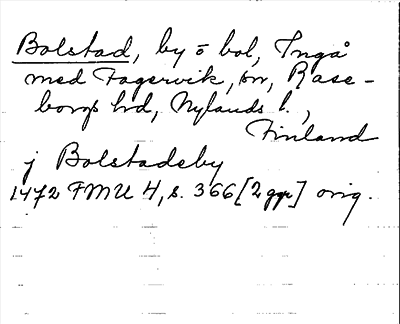 Bolstad, by ō bol, Ingå
med Fagervik, sn, Rase-
borgs hd, Nylands l.,
Finland
j Bolstadeby
1472 FMU 4, s. 366 [2 ggr] orig.